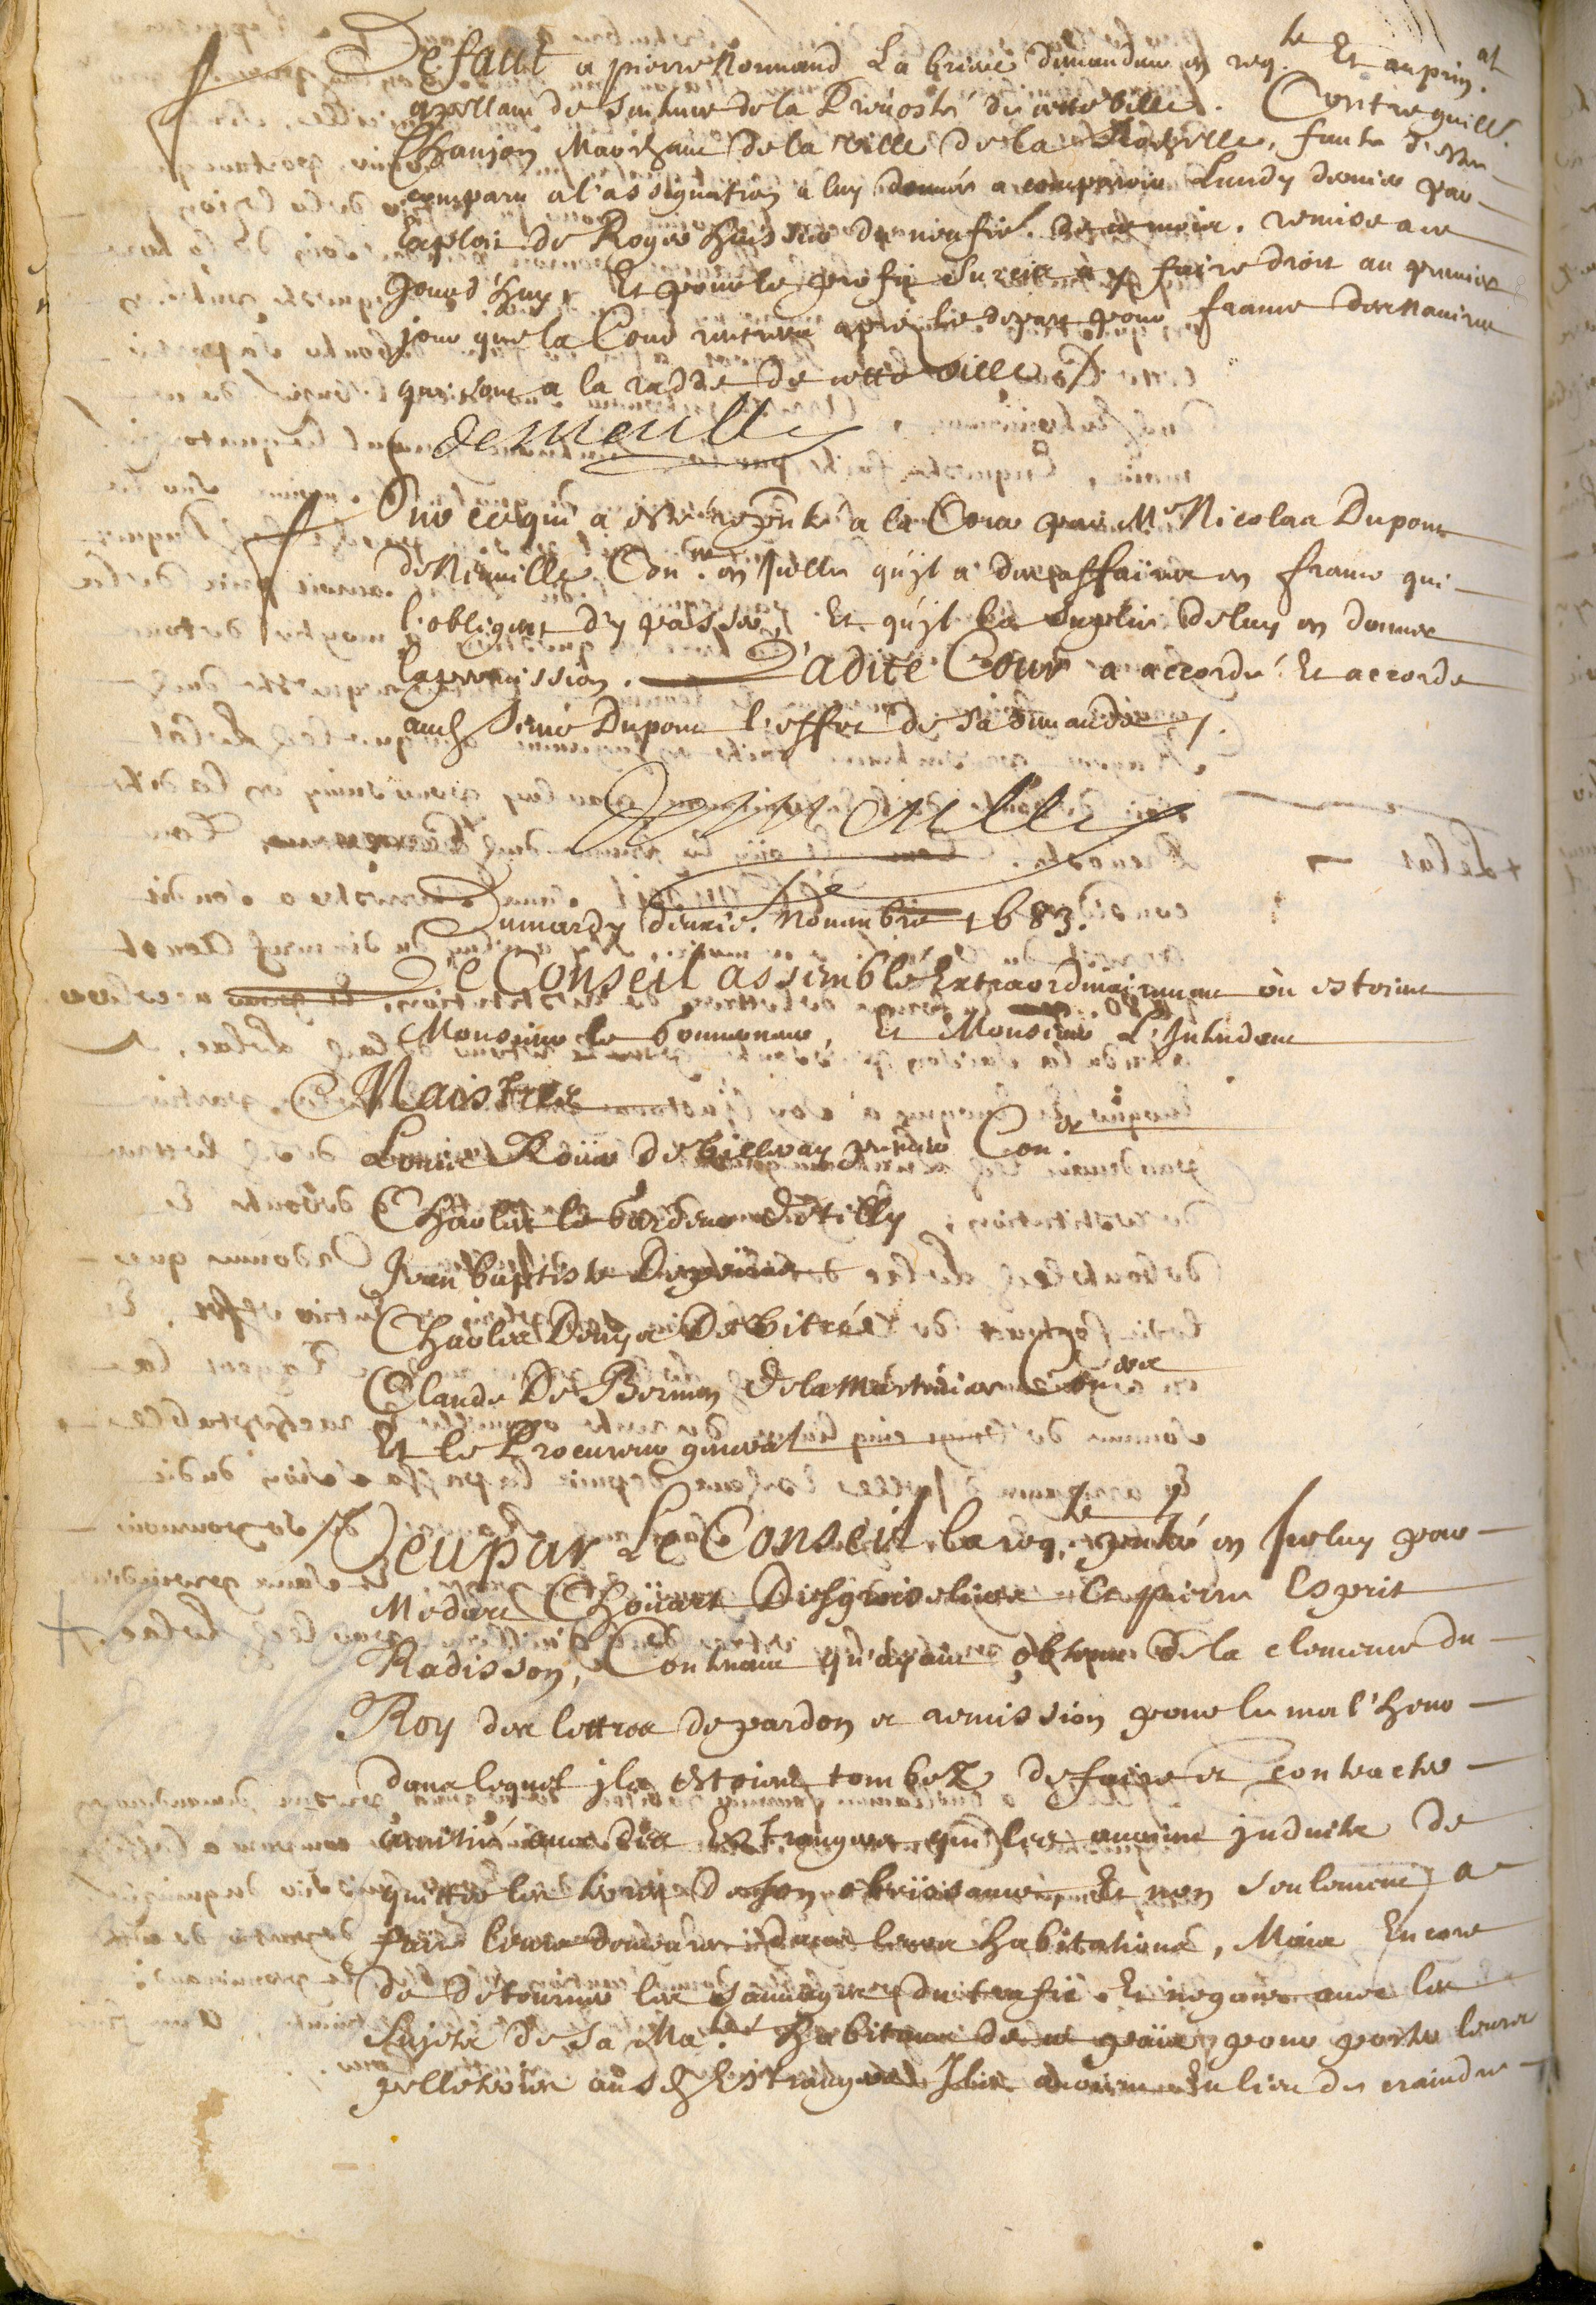 Defaut a pierre Normand La briere demandeur en req.te Et au prin.al
apellant de Sentence de la Prevosté de cette ville. Contre guill.
Chanjon Marchant de la ville de la Rochelle, faute d'estre
comparu a l'assignation a luy donnée a comparoir Lundy dernier par
Exploit de Roger huissier du neufie. de ce mois. remise a ce
Jourd'huy, Et pour le profit Surcis a y faire droit au premier
jour que la Cour rentrera aprés le depart pour france des navires
qui sont a la radde de cette ville ./.
Demeulle
Sur ce qui a esté repnté a la Cour par Me Nicolas Dupont
de Neuville Con.er en Icelle qu'jl a des affaires en france qui
l'obligent d'y passer, Et qu'jl la suplie de luy en donner
la permission. Ladite Cour a accordé Et accorde
aud. Sieur Dupont l'effet de sa demande ./.
Demeulle
Du mardy deuxie.e Novembre 1683.
Le Conseil assemblé Extraordinairement où estoient
Monsieur le Gouverneur, Et Monsieur L'Intendant
Maistres
Louis Roüer de Villeray premier Con.er
Charles le Gardeur de Tilly
Jean baptiste Depeiras
Charles Denys De Vitré
Claude De Bermen de la Martiniere Con.ers
Et le Procureur general
Veu par Le Conseil la req.te pntée en Iceluy par
Medart Choüart Desgroiseliers Et pierre Esprit
Radisson, Contenant qu'ayant obtenu de la clemence du
Roy des lettres de pardon et remission pour le mal'heur
dans lequel jls estoient tombez de faire et contracter
amitié avec des Estrangers qui les avoient induits de
quitter les terres de son obeïssance, Et non seulement a
faire leurs demeures dans leurs habitations, Mais Encore
de détourner les sauvages du trafic Et negoce avec les
Sujets de sa Ma.té habitans de ce païs, pour porter leurs
pelleteries ausd. Estrangers Ilz avoient Eu lieu de craindre